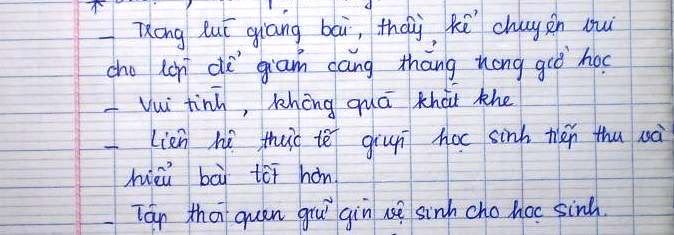 - Trong lúc giảng bài, thầy kể chuyện vui
cho lớp để giảm căng thẳng trong giờ học
- Vui tính, không quá khắt khe
- Liên hệ thực tế giúp học sinh tiếp thu và
hiểu bài tốt hơn.
- Tập thói quen giữ gìn vệ sinh cho học sinh.